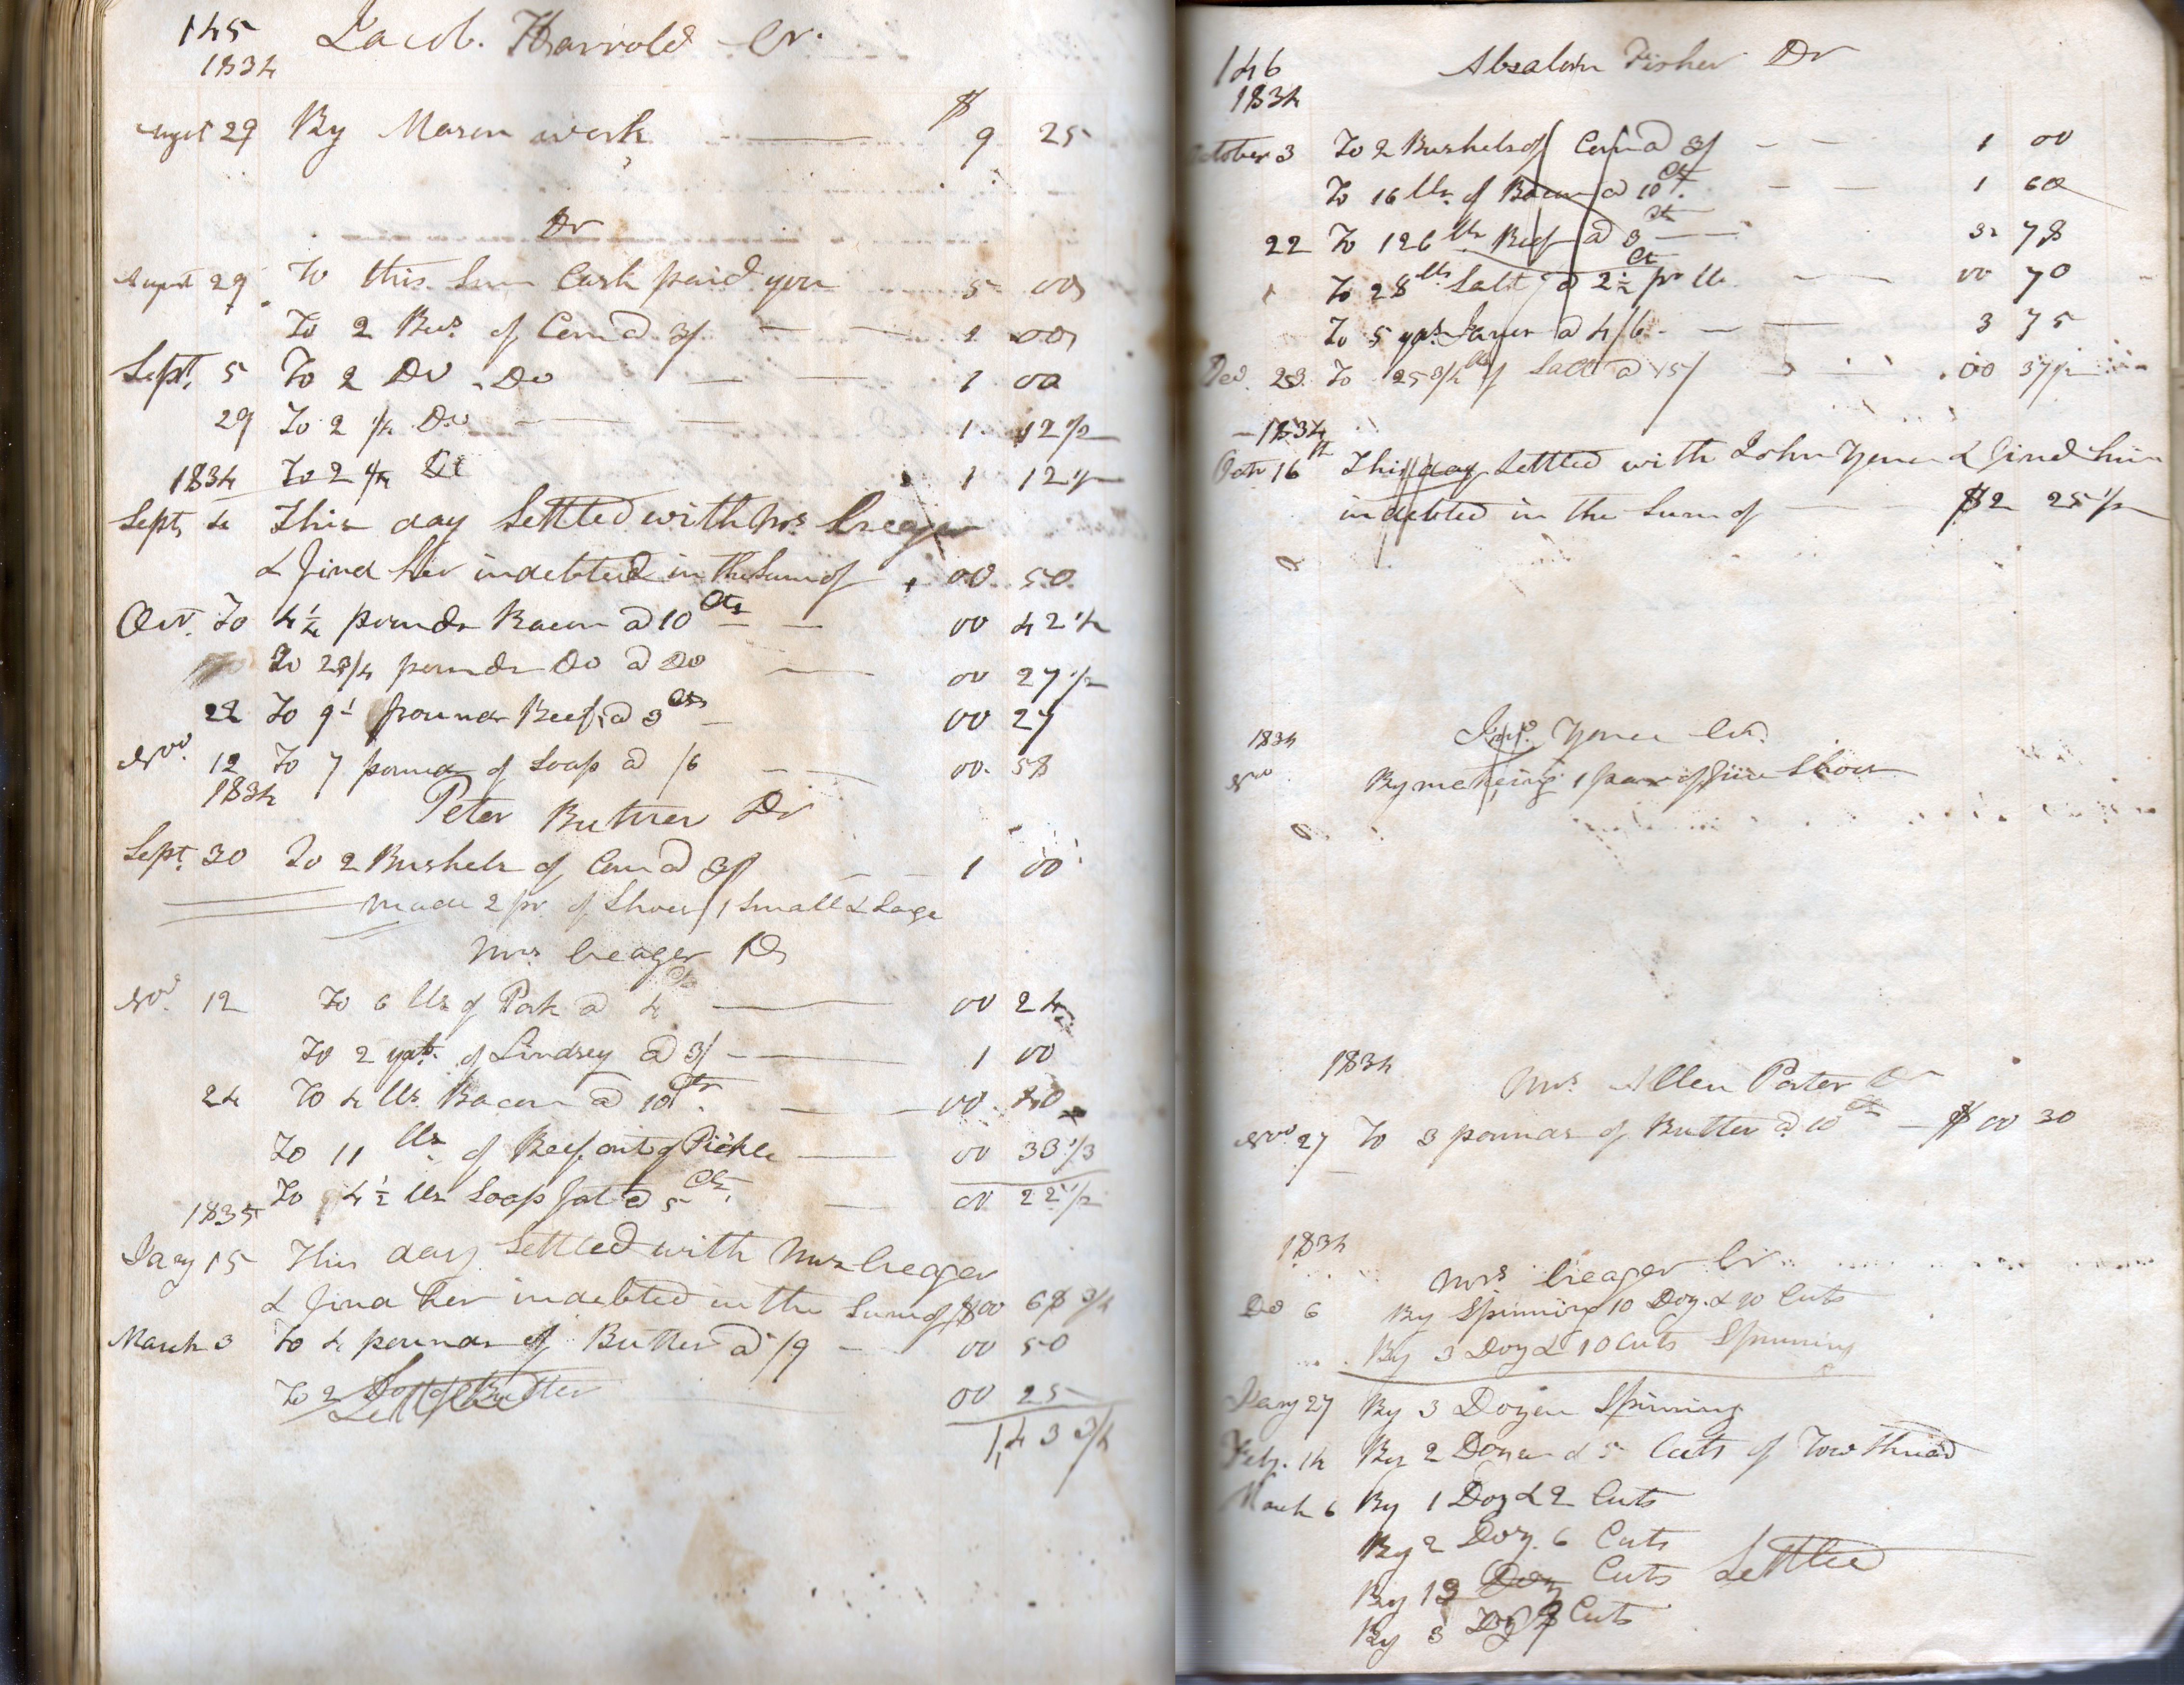 145 Jacob. Harrold Cr.
1834
August 29 By Mason work $ 9 25
Dr
August 29 To this Sum Cash paid you 5 00
To 2 Bus. of Corn @ 3/ 1 00
Sept. 5 To 2 Do Do 1 00
29 To 2 1/4 Do 1 12 1/2
1834 To 2 1/4 Do 1 12 1/2
Sept. 4 This day Settled with Mrs. Creager
& find her indebted in the Sum of 00 50
Oct. To 4 1/4 pounds Bacon @ 10 Cts 00 42 1/2
To 2 3/4 pounds Do @ Do 00 27 1/2
22 To 9 pounds Beef @ 3 Cts 00 27
Nov. 12 To 7 pounds of Soap @ /6 00 58
1834
Peter Butner Dr
Sept. 30 To 2 Bushels of Corn @ 3/ 1 00
Made 2 pr. of Shoes 1 Small & Large
Mrs. Creager Dr
Nov. 12 To 6 lbs of Pork @ 4 Cts 00 24
To 2 yds. of Lindsey @ 3/ 1 00
24 To 4 lbs. Bacon @ 10 Cts. 00 40
To 11 lbs. of Beef out of Pickle 00 33 1/3
To 4 1/2 lbs Soap fat @ 5 Cts. 00 22 1/2
1835
Jany 15 This day Settled with Mrs Creager
& find her indebted in the Sum of $00 68 3/4
March 3 To 4 pounds of Butter @ /9 00 50
To 2 Do of Butter 00 25
Settled
1,43 3/4
146 Absalom Fisher Dr
1834
October 3 To 2 Bushels of Corn @ 3/ 1 00
To 16 lbs. of Bacon @ 10 Ct. 1 60
22 To 126 lbs Beef @ 3 Cts 3 78
To 28 lbs Salt @ 2 1/2 Ct pr lb 00 70
To 5 yds. Janes @ 4/6 3 75
Dec. 23 To 25 3/4 lbs of Salt @ 00 37 1/2
1834
Oct 16th This day Settled with John Yonce & find him
indebted in the Sum of $2 25 1/2
1834 Jno. Yonce Cr.
Nov By making 1 pair of fine Shoes
1834
Mrs. Allen Porter Dr
Nov 27 To 3 pounds of Butter @ 10 Cts $ 00 30
1834
Mrs Creager Cr.
De 6 By Spinning 10 Doz. & 90 Cuts
By 3 Doz & 10 Cuts Spinning
Jany 27 By 3 Dozen Spinning
Feb. 14 By 2 Dozen & 5 Cuts of Tow Thread
March 6 By 1 Doz & 2 Cuts
By 2 Doz. 6 Cuts
By 13 Doz Cuts Settled
By 3 Doz Cuts